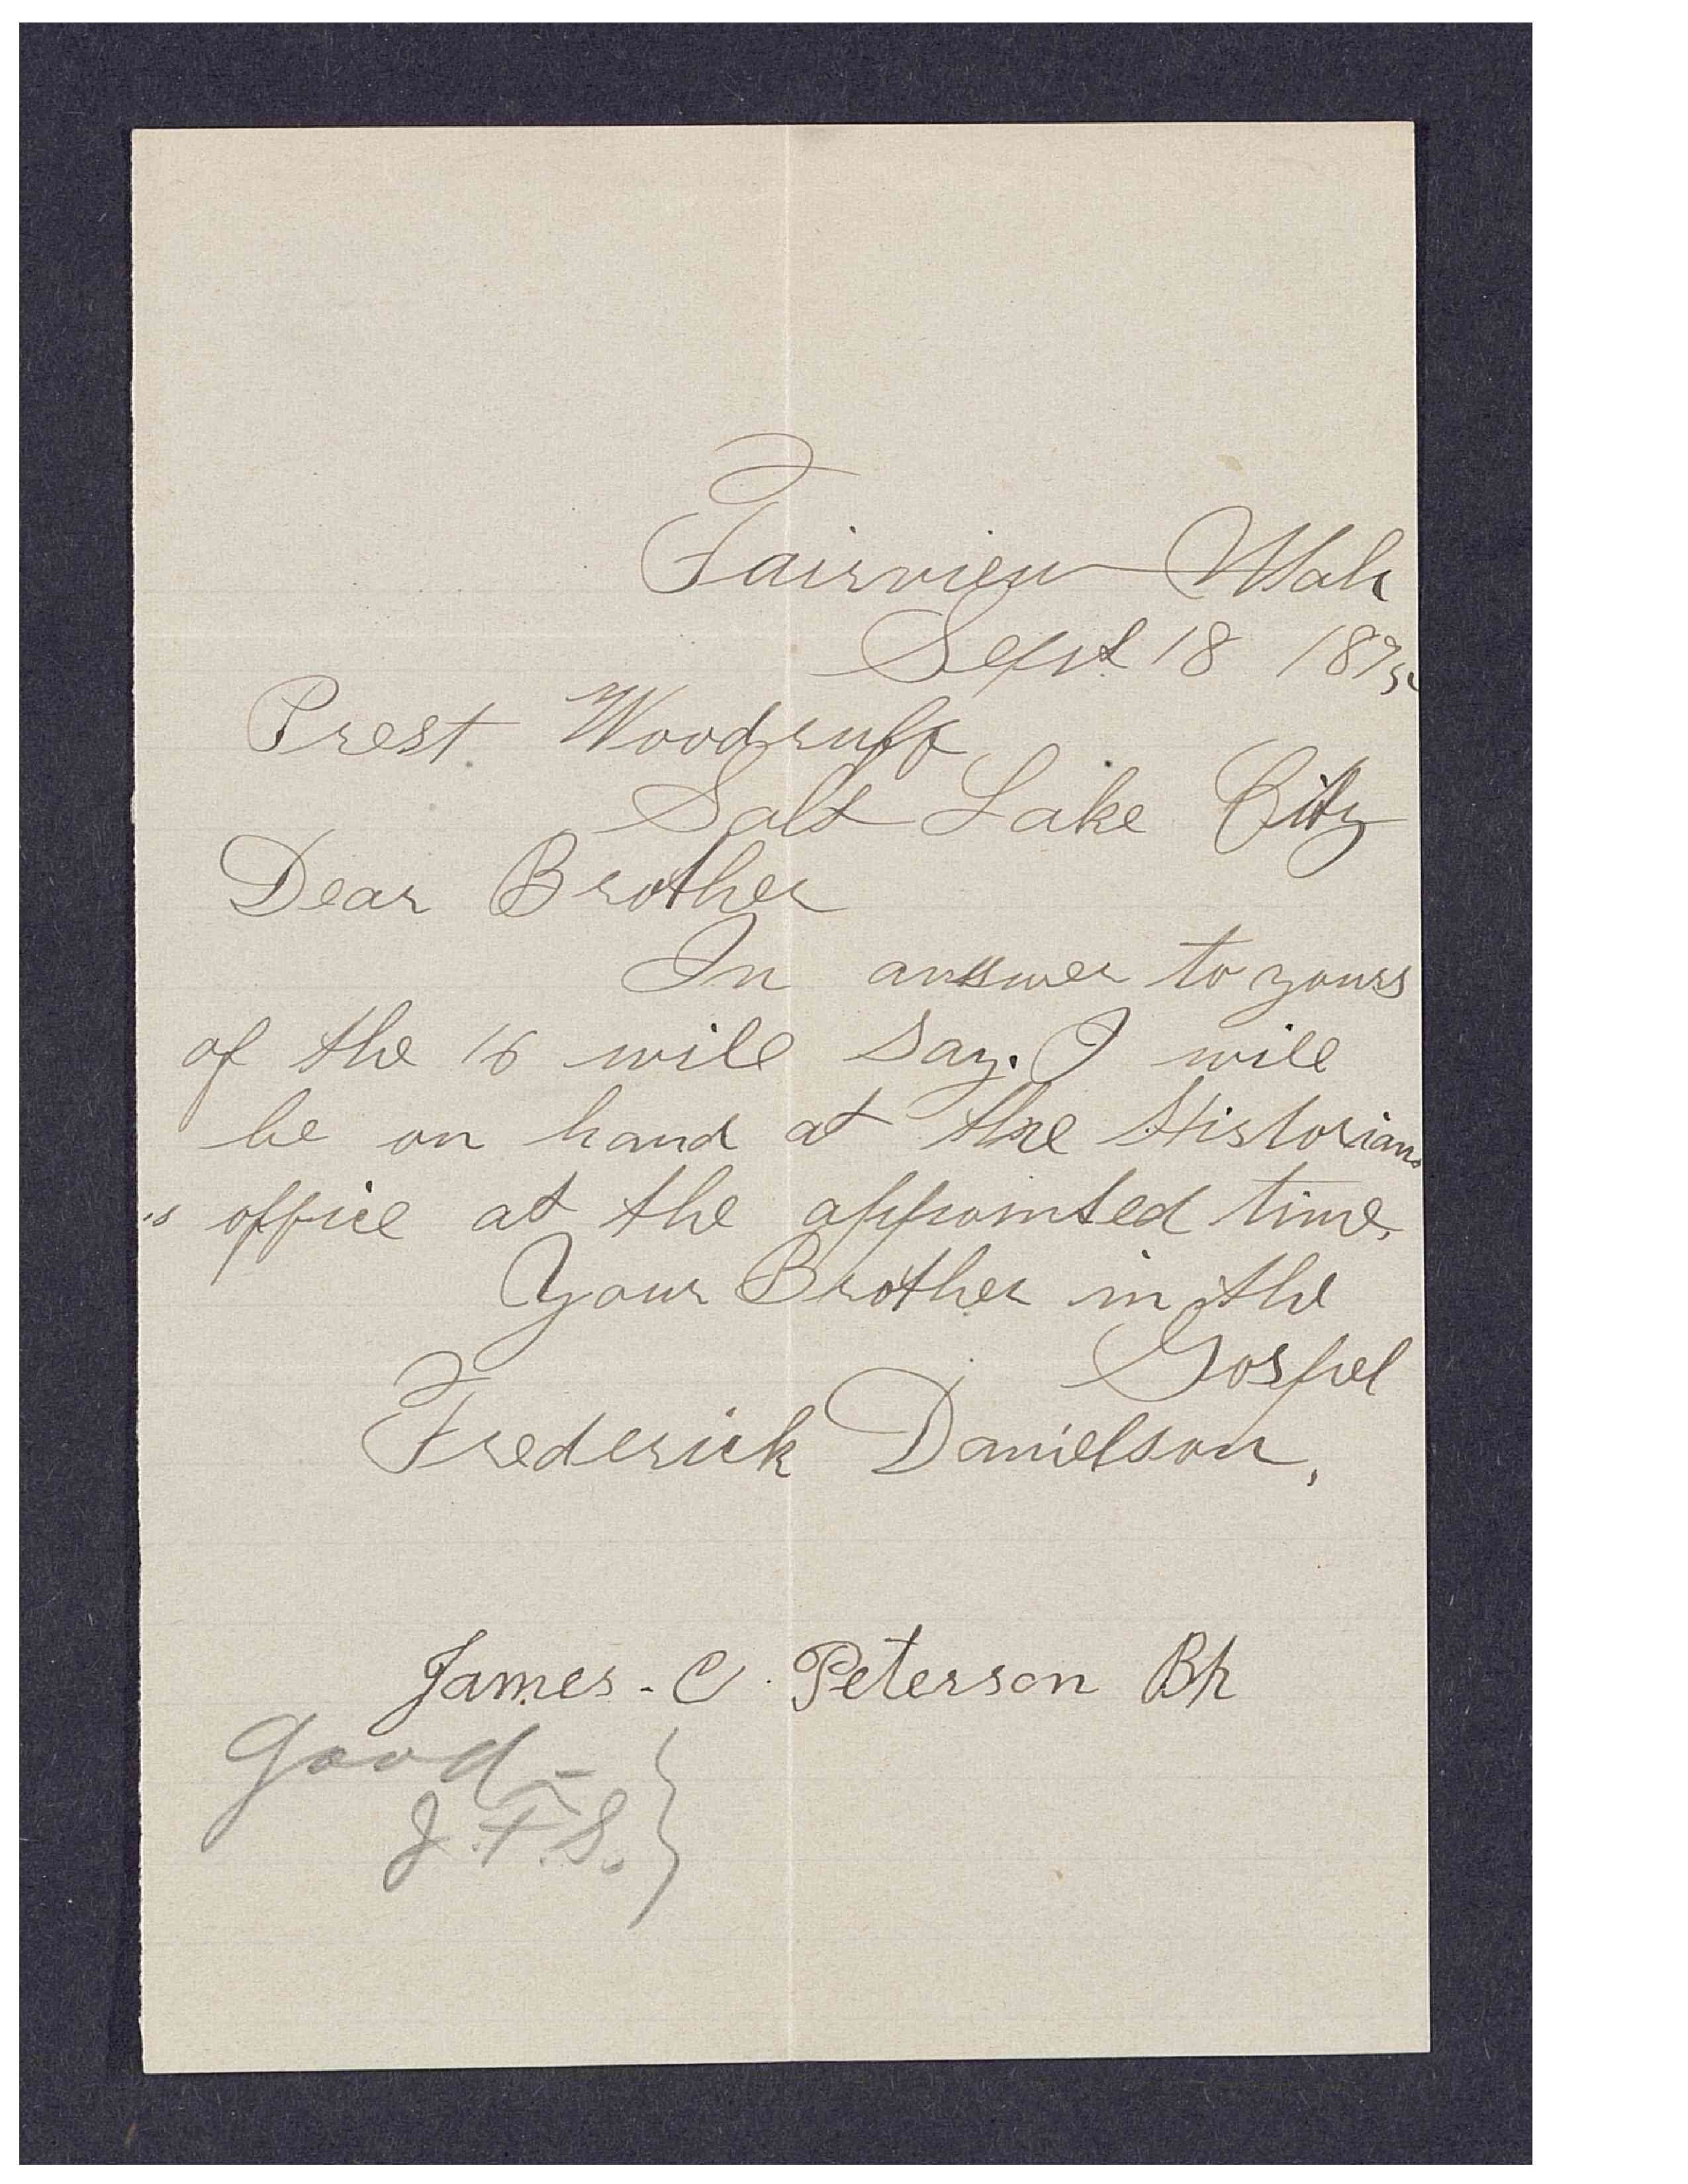 Fairview Utah
Sept 18
Prest. Woodruff
Salt Lake City
Dear Brother
In answer to yours
of the 16 will say. I will
be on hand at the Historian
s office at the appointed time.
Your Brother in the
Gospel
Frederick Danielson.
James. C. Peterson Bp
Good–
J.F.S.